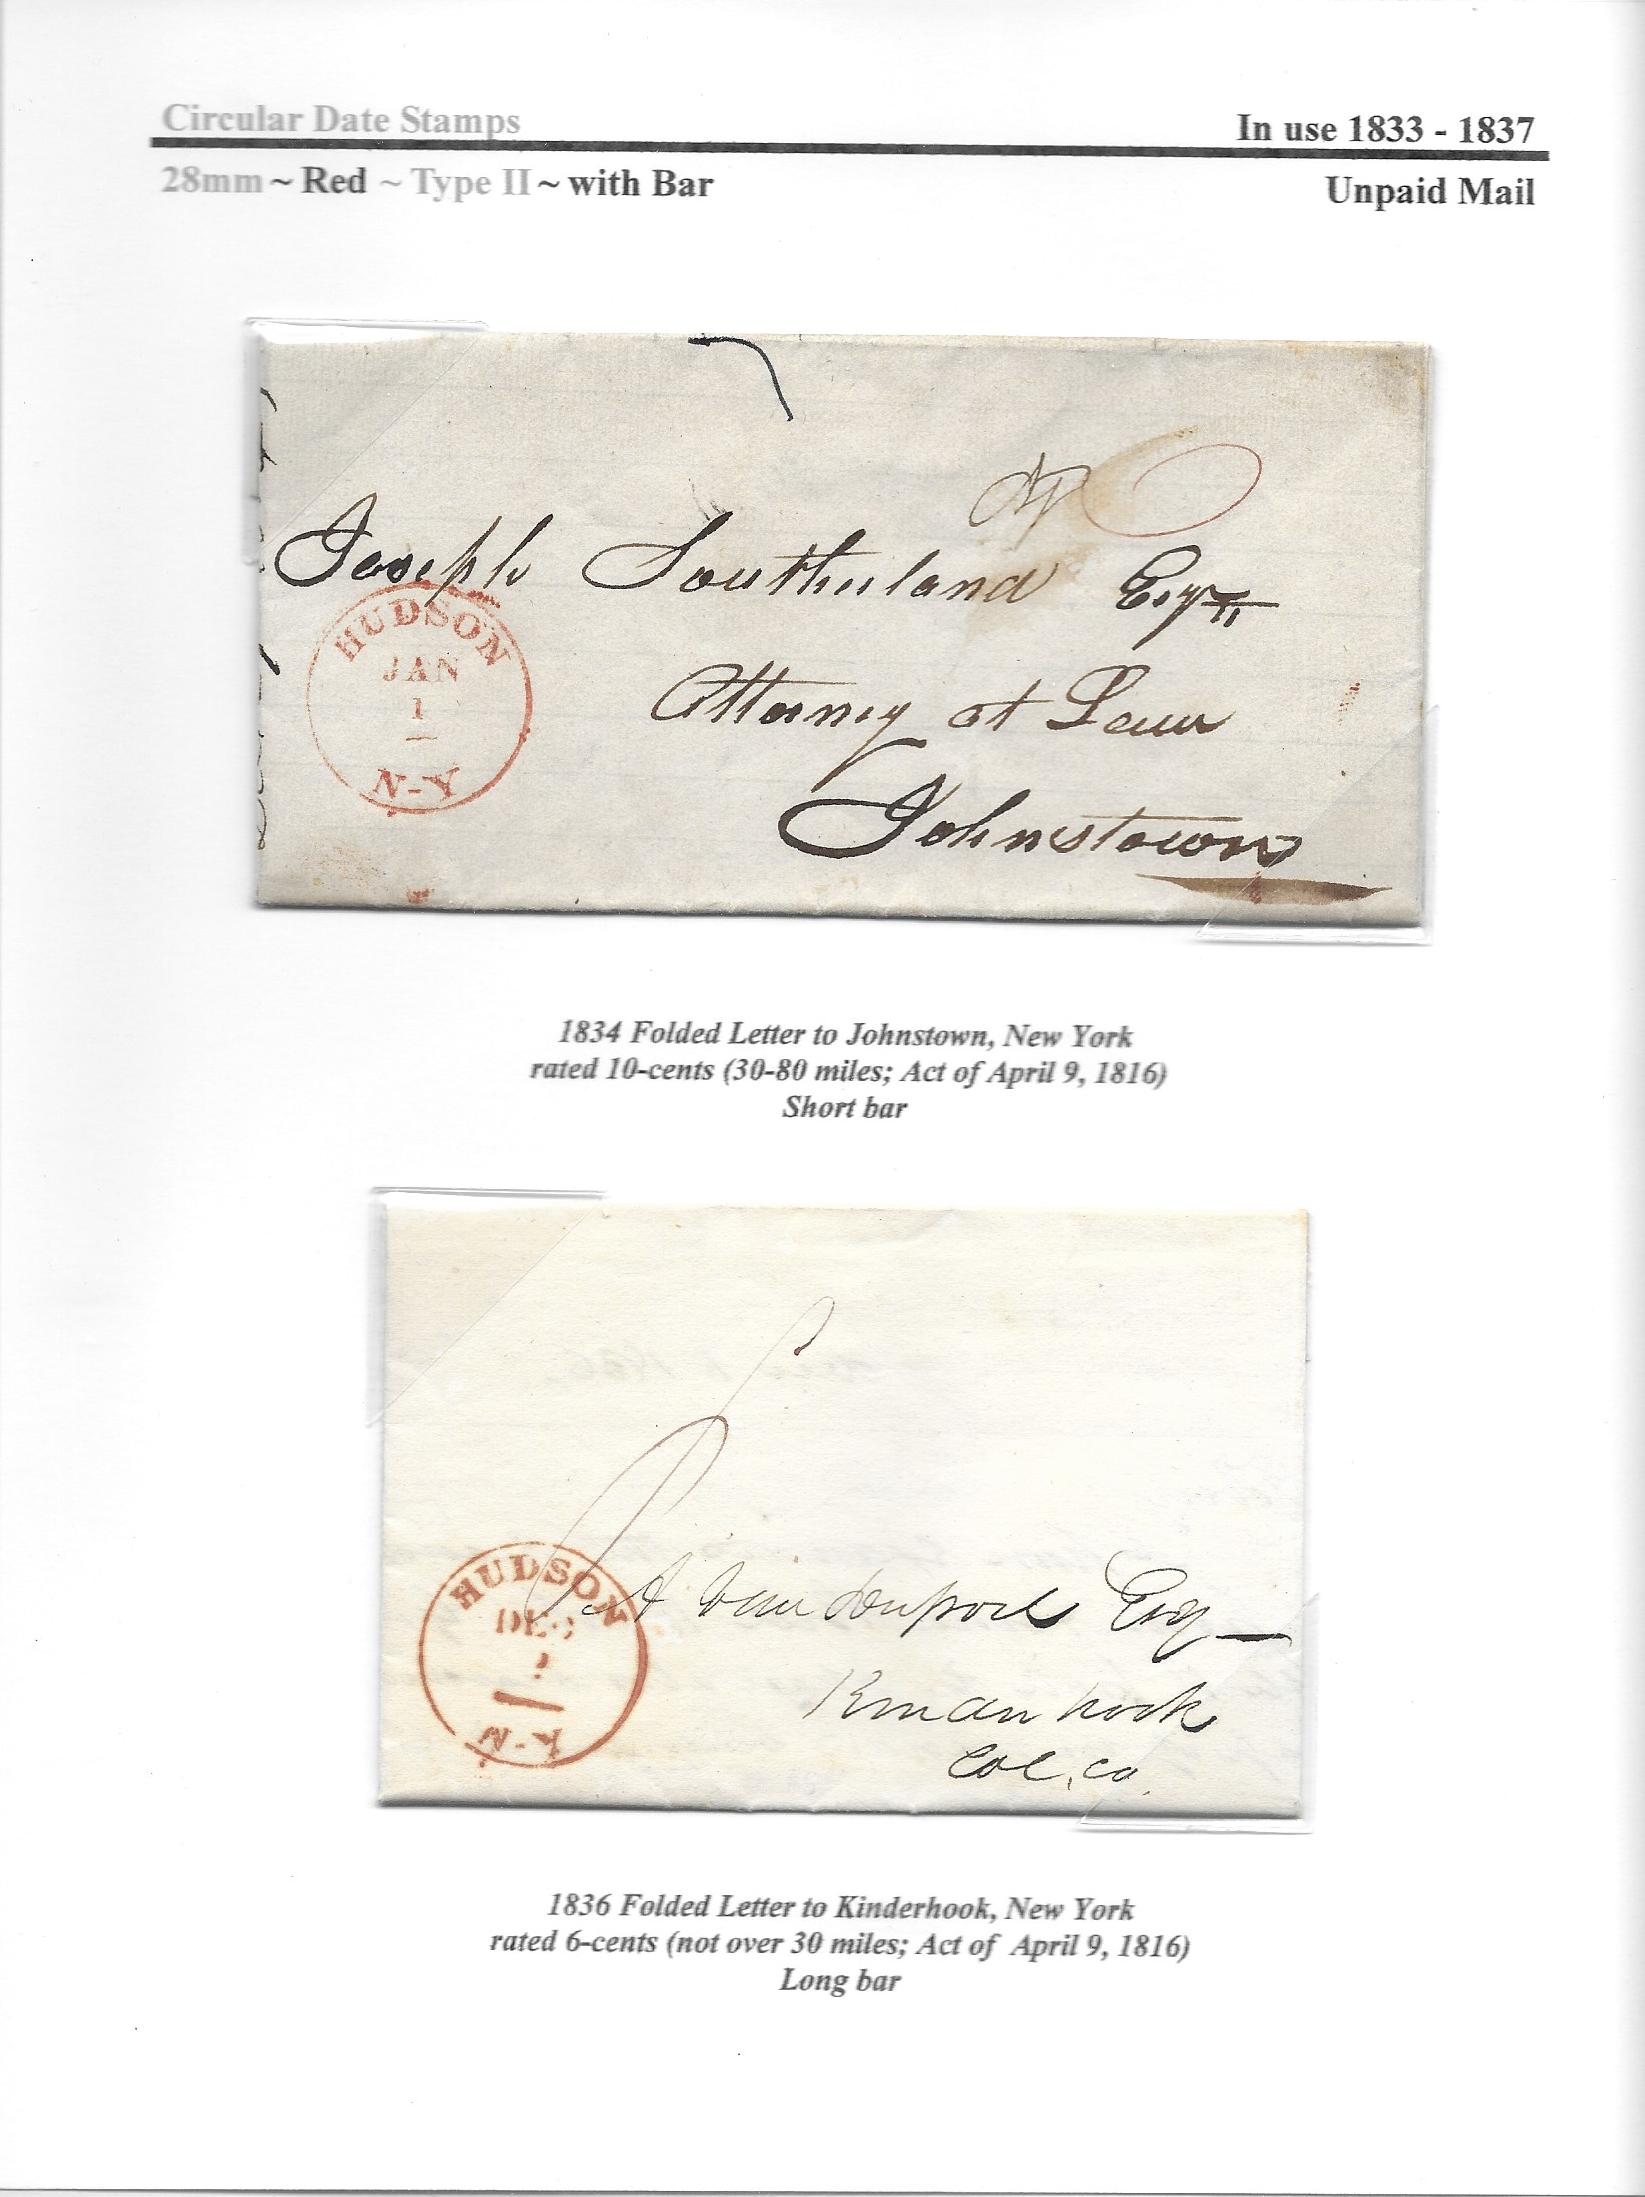 Circular Date Stamps
In use 1833 - 1837
28mm ~ Red ~ Type II ~ with Bar
Unpaid Mail
Joseph Southerland Esqr
Attorney at Law
Johnstown
HUDSON
JAN
1
N-Y
1834 Folded Letter to Johnstown, New York
rated 10-cents (30-80 miles; Act of April 9, 1816)
Short bar
HUDSON
DEC
N-Y
A Esq
Col. Co.
1836 Folded Letter to Kinderhook, New York
rated 6-cents (not over 30 miles; Act of April 9, 1816)
Long bar